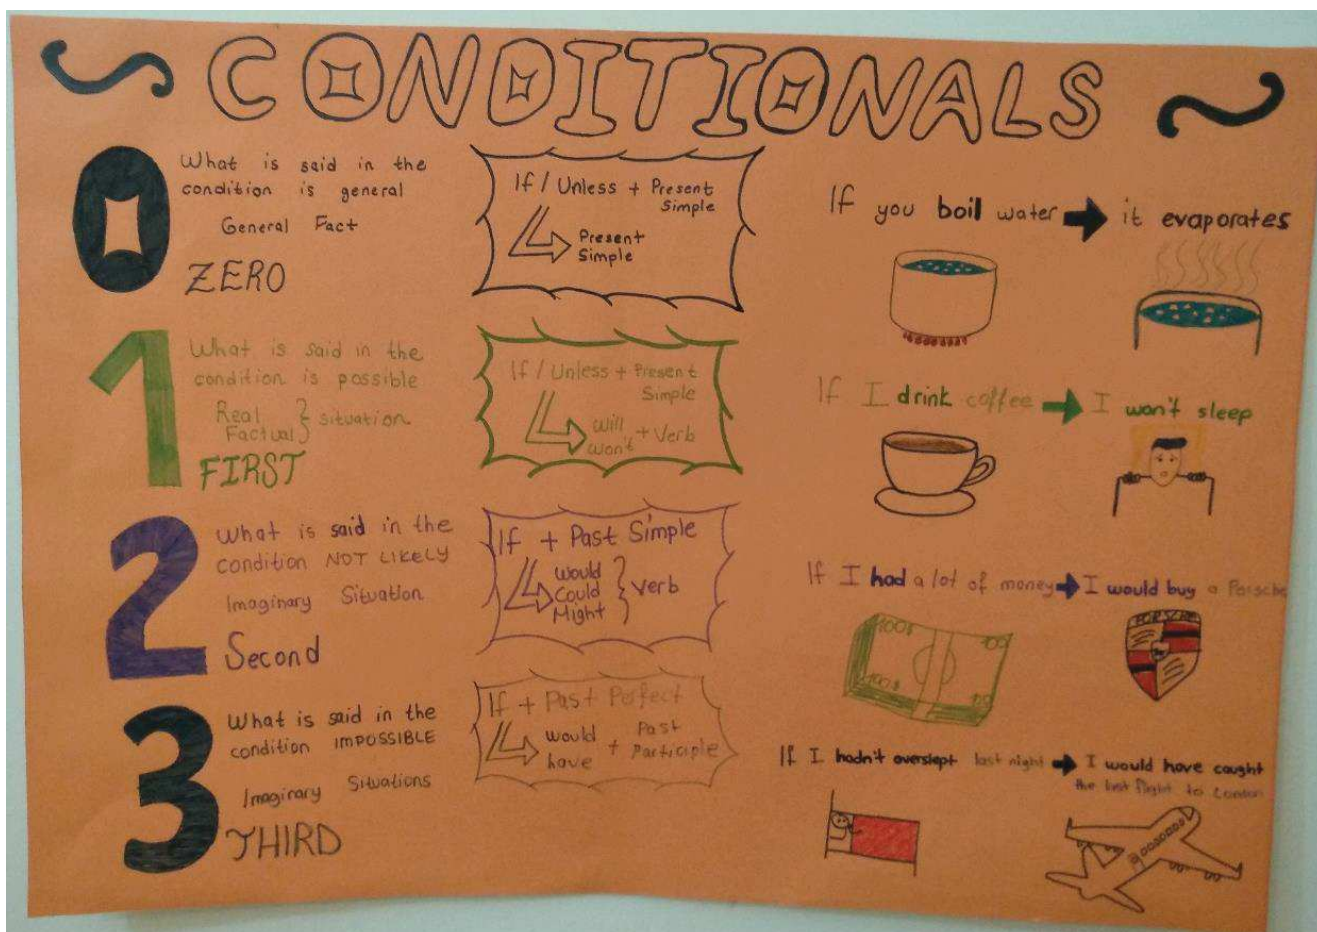 CONDITIONALS
0
What is said in the
condition is general
General Fact
ZERO
If / Unless + Present
Simple
Present
Simple
If you boil water
it evaporates
1
What is said in the
condition is possible
Real
Factual
Situation
FIRST
If / Unless + Present
Simple
will
won't
+ Verb
If I drink coffee
I won't sleep
2
What is said in the
condition NOT LIKELY
Imaginary Situation
Second
If + Past Simple
Would
Could
Might
Verb
If I had a lot of money
I would buy a Porsche
100$
100
100$
PORSCHE
3
What is said in the
condition IMPOSSIBLE
Imaginary Situations
THIRD
If + Past Perfect
would
have
+ Past
Participle
If I hadn't overslept last night
I would have caught
flight to London